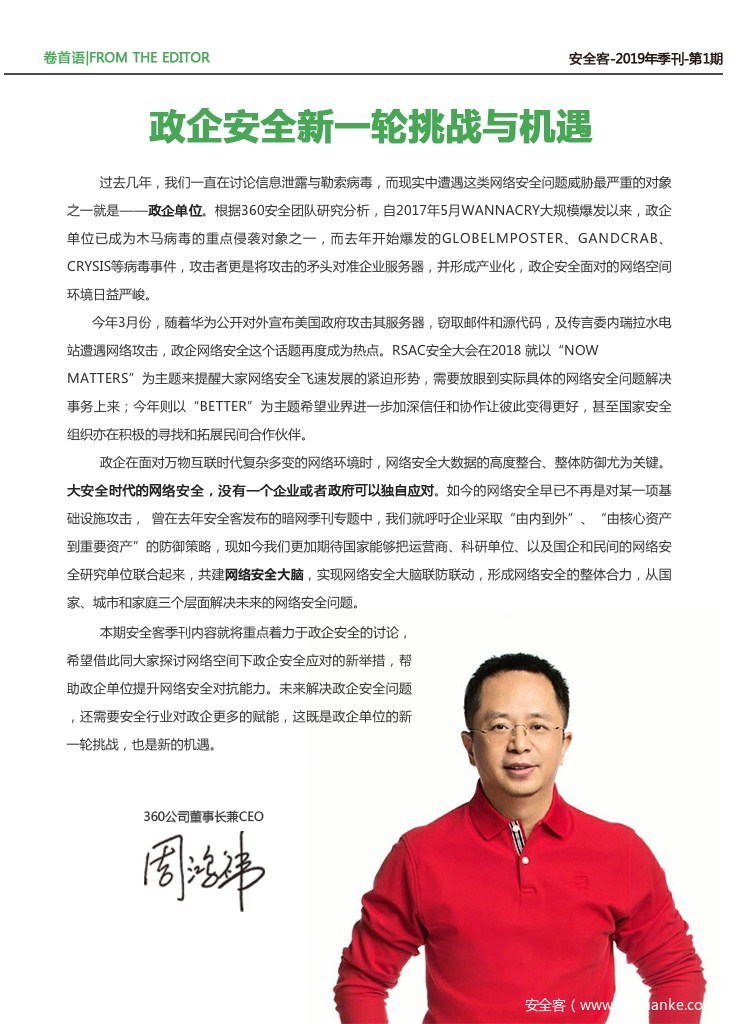 卷首语|FROM THE EDITOR
安全客-2019年季刊-第1期
政企安全新一轮挑战与机遇
过去几年，我们一直在讨论信息泄露与勒索病毒，而现实中遭遇这类网络安全问题威胁最严重的对象
之一就是——政企单位。根据360安全团队研究分析，自2017年5月WANNACRY大规模爆发以来，政企
单位已成为木马病毒的重点侵袭对象之一，而去年开始爆发的GLOBELMPOSTER、GANDCRAB、
CRYSIS等病毒事件，攻击者更是将攻击的矛头对准企业服务器，并形成产业化，政企安全面对的网络空间
环境日益严峻。
今年3月份，随着华为公开对外宣布美国政府攻击其服务器，窃取邮件和源代码，及传言委内瑞拉水电
站遭遇网络攻击，政企网络安全这个话题再度成为热点。RSAC安全大会在2018 就以“NOW
MATTERS”为主题来提醒大家网络安全飞速发展的紧迫形势，需要放眼到实际具体的网络安全问题解决
事务上来；今年则以“BETTER”为主题希望业界进一步加深信任和协作让彼此变得更好，甚至国家安全
组织亦在积极的寻找和拓展民间合作伙伴。
政企在面对万物互联时代复杂多变的网络环境时，网络安全大数据的高度整合、整体防御尤为关键。
大安全时代的网络安全，没有一个企业或者政府可以独自应对。如今的网络安全早已不再是对某一项基
础设施攻击， 曾在去年安全客发布的暗网季刊专题中，我们就呼吁企业采取“由内到外”、“由核心资产
到重要资产”的防御策略，现如今我们更加期待国家能够把运营商、科研单位、以及国企和民间的网络安
全研究单位联合起来，共建网络安全大脑，实现网络安全大脑联防联动，形成网络安全的整体合力，从国
家、城市和家庭三个层面解决未来的网络安全问题。
本期安全客季刊内容就将重点着力于政企安全的讨论，
希望借此同大家探讨网络空间下政企安全应对的新举措，帮
助政企单位提升网络安全对抗能力。未来解决政企安全问题
，还需要安全行业对政企更多的赋能，这既是政企单位的新
一轮挑战，也是新的机遇。
360公司董事长兼CEO
周鸿祎
安全客（www.